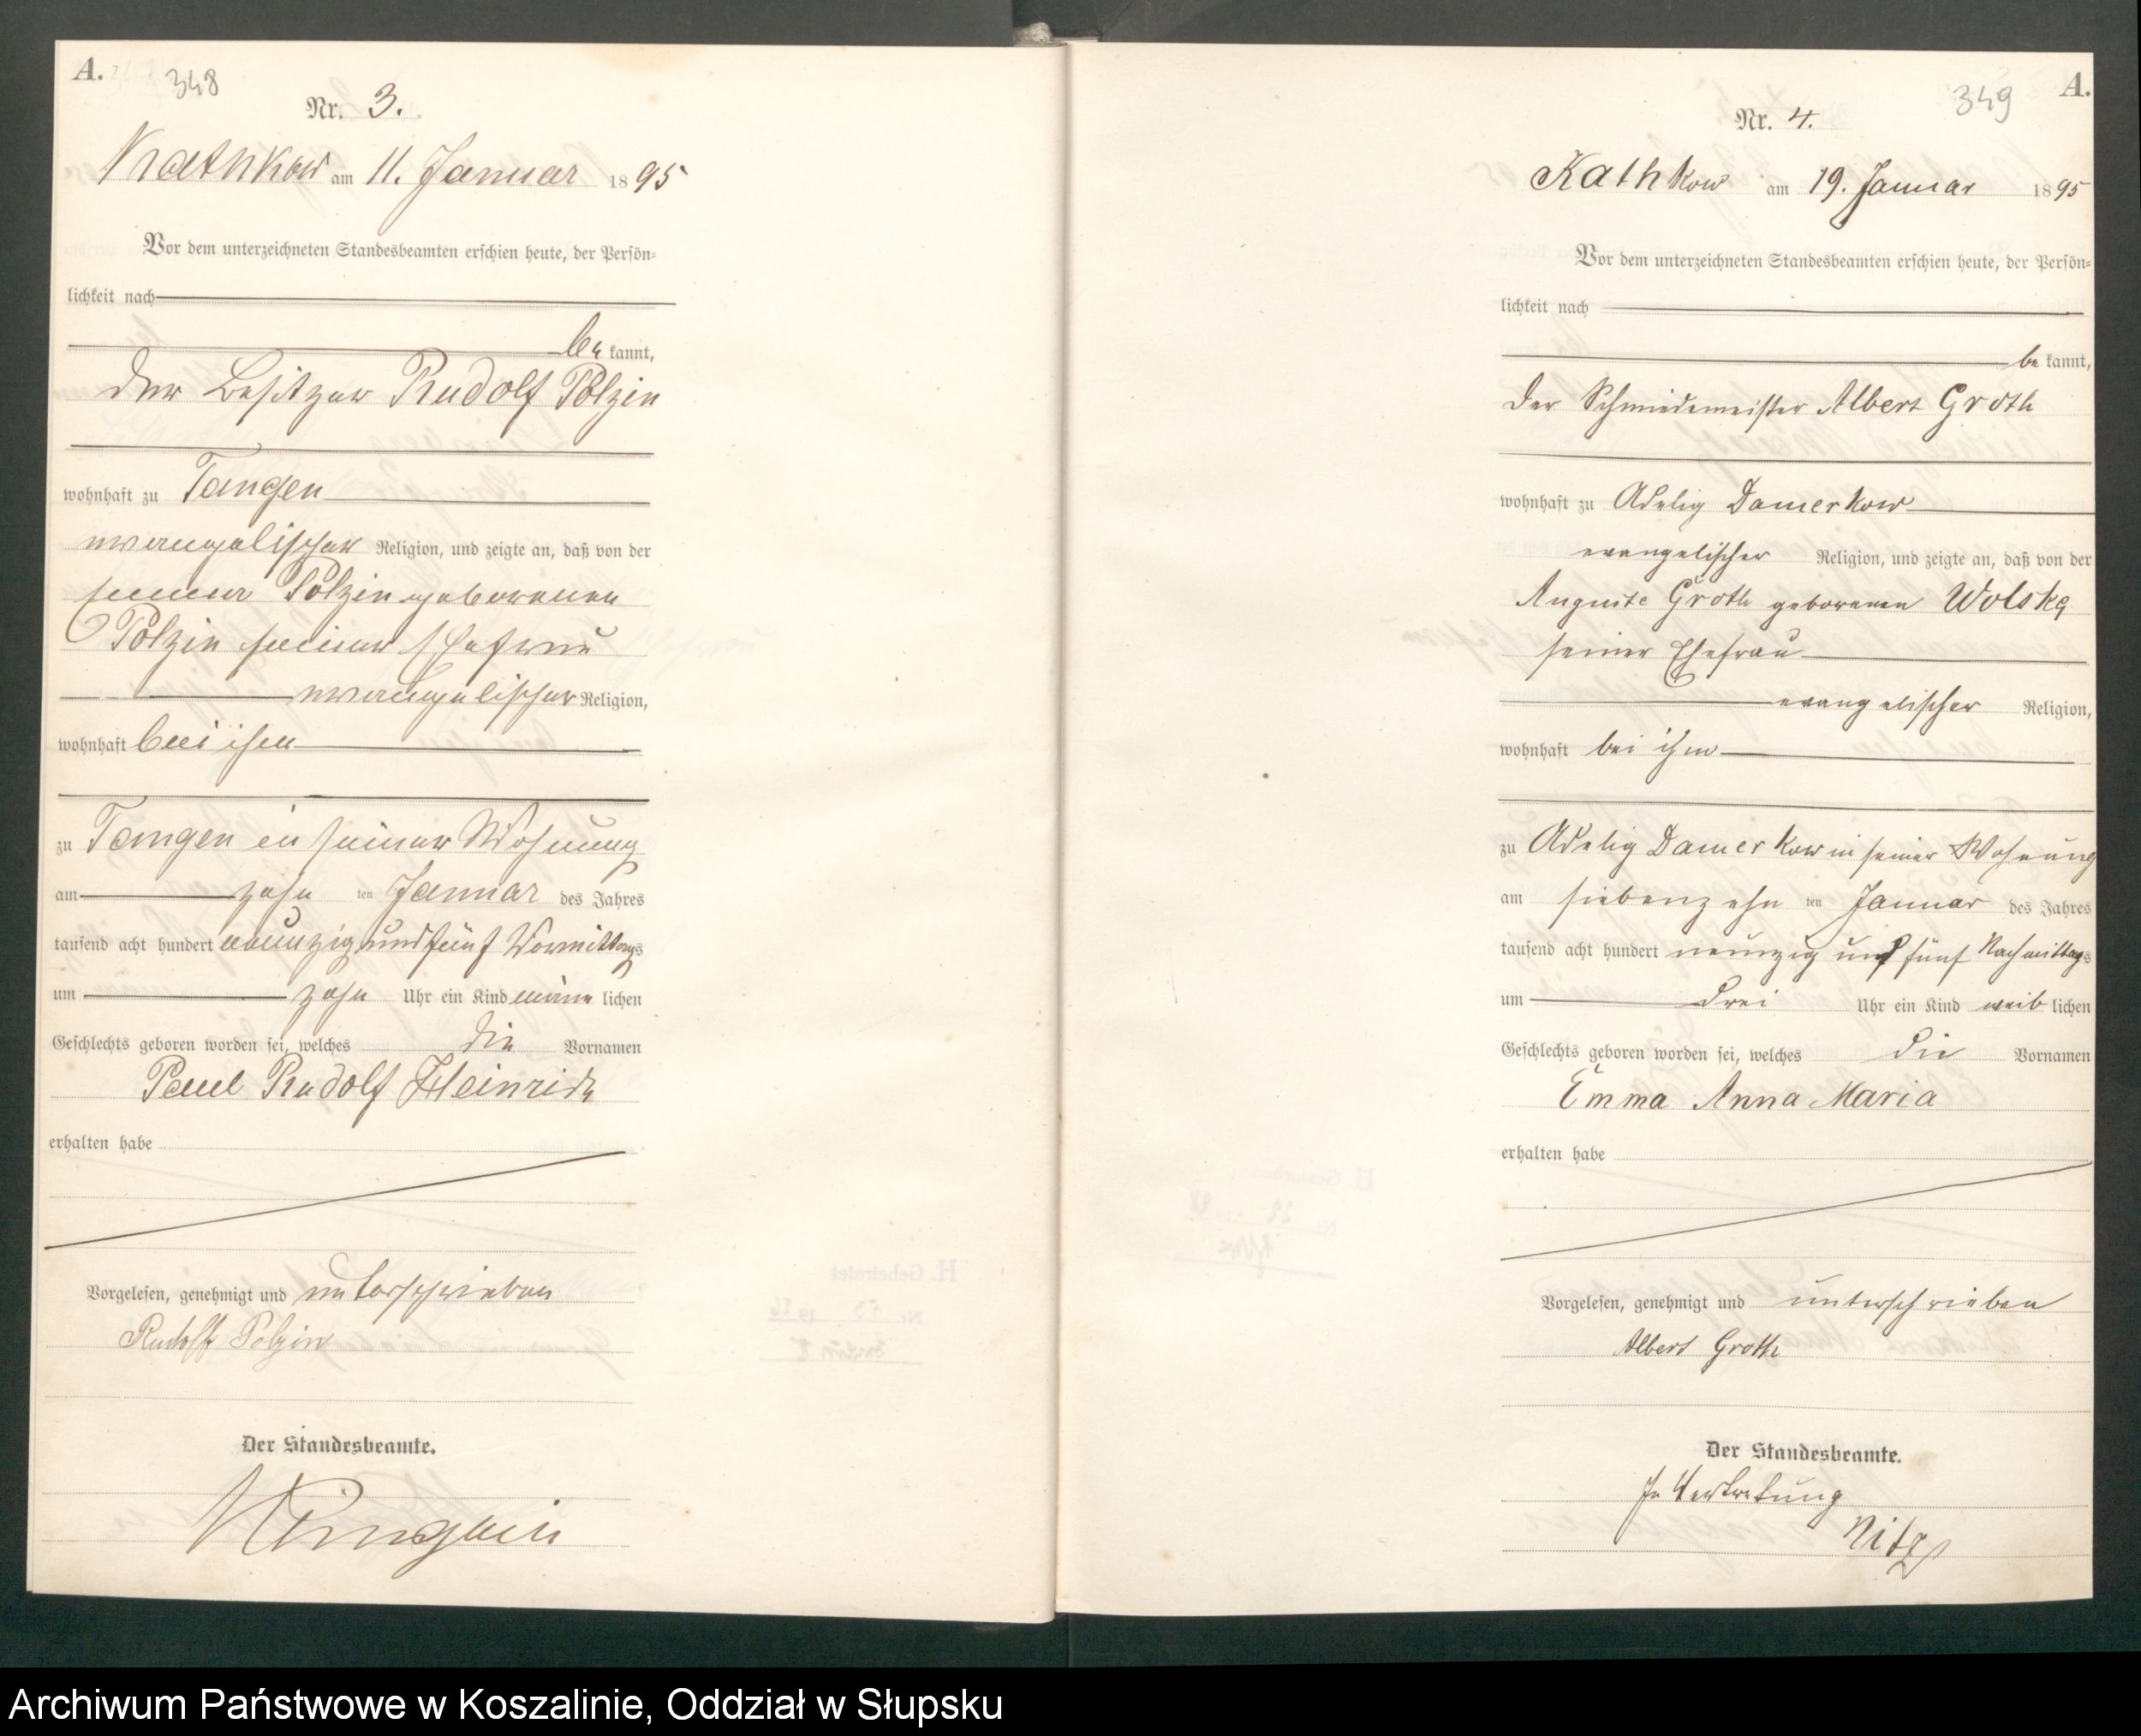 A.
348
Nr. 3.
Kathkow am 11. Januar 1895
Vor dem unterzeichneten Standesbeamten erschien heute, der Persön-
lichkeit nach
be kannt,
der Besitzer Rudolf Polzin
wohnhaft zu Tangen
evangelischer Religion, und zeigte an, daß von der
Polzin geborenen
Polzin seiner Ehefrau
evangelischer Religion,
wohnhaft bei ihm
zu Tangen in seiner Wohnung
am zehn ten Januar des Jahres
tausend acht hundert neunzig und fünf Vormittags
um zehn Uhr ein Kind männ lichen
Geschlechts geboren worden sei, welches die Vornamen
Paul Rudolf Heinrich
erhalten habe
Vorgelesen, genehmigt und unterschrieben
Rudolf Polzin
Der Standesbeamte.
349
A.
Nr. 4.
Kathkow am 19. Januar 1895
Vor dem unterzeichneten Standesbeamten erschien heute, der Persön-
lichkeit nach
be kannt,
der Schmiedemeister Albert Groth
wohnhaft zu Adelig Damerkow
evangelischer Religion, und zeigte an, daß von der
Auguste Groth geborenen Wolske
seiner Ehefrau
evangelischer Religion,
wohnhaft bei ihm
zu Adelig Damerkow in seiner Wohnung
am siebenzehn ten Januar des Jahres
tausend acht hundert neunzig und fünf Nachmittags
um drei Uhr ein Kind weib lichen
Geschlechts geboren worden sei, welches die Vornamen
Emma Anna Maria
erhalten habe
Vorgelesen, genehmigt und unterschrieben
Albert Groth
Der Standesbeamte.
In Vertretung
Nitz
Archiwum Państwowe w Koszalinie, Oddział w Słupsku